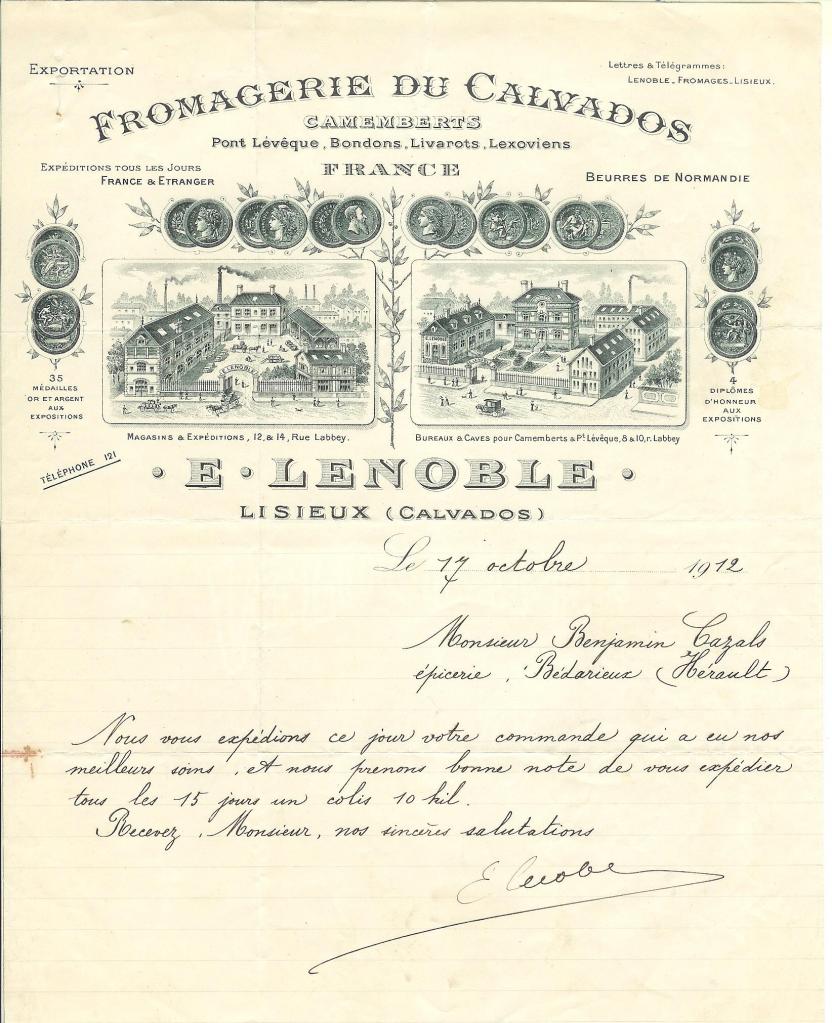 EXPORTATION
Lettres & Télégrammes:
LENOBLE_FROMAGES_LISIEUX.
FROMAGERIE DU CALVADOS
CAMEMBERTS
Pont Lévêque, Bondons, Livarots, Lexoviens
EXPÉDITIONS TOUS LES JOURS
FRANCE & ETRANGER
FRANCE
BEURRES DE NORMANDIE
E. LENOBLE
35
MÉDAILLES
OR ET ARGENT
AUX
EXPOSITIONS
4
DIPLÔMES
D'HONNEUR
AUX
EXPOSITIONS
MAGASINS & EXPÉDITIONS, 12, & 14, Rue Labbey.
BUREAUX & CAVES pour CAMEMBERTS & Pt. LÉVÊQUE, 8 & 10, r. Labbey
TÉLÉPHONE 121
· E · LENOBLE ·
LISIEUX (CALVADOS)
Le 17 octobre 1912
Monsieur Benjamin Cazals
épicerie, Bédarieux (Hérault)
Nous vous expédions ce jour votre commande qui a eu nos
meilleurs soins, et nous prenons bonne note de vous expédier
tous les 15 jours un colis 10 kil.
Recevez, Monsieur, nos sincères salutations
E Lenoble